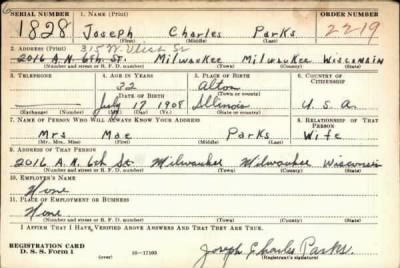 SERIAL NUMBER 1. NAME (Print) ORDER NUMBER
1828 Joseph Charles Parks 2219
(First) (Middle) (Last)
2. ADDRESS (Print) 315 W. St
2016 A. N. 6th St. Milwaukee Milwaukee Wisconsin
(Number and street or R. F. D. number) (Town) (County) (State)
3. TELEPHONE 4. AGE IN YEARS 5. PLACE OF BIRTH 6. COUNTRY OF CITIZENSHIP
32 Alton
DATE OF BIRTH (Town or county)
July 17 1908 Illinois U.S.A.
(Exchange) (Number) (Mo.) (Day) (Yr.) (State or country)
7. NAME OF PERSON WHO WILL ALWAYS KNOW YOUR ADDRESS 8. RELATIONSHIP OF THAT PERSON
Mrs Mae Parks Wife
(Mr., Mrs., Miss) (First) (Middle) (Last)
9. ADDRESS OF THAT PERSON
2016 A. N. 6th St. Milwaukee Milwaukee Wisconsin
(Number and street or R. F. D. number) (Town) (County) (State)
10. EMPLOYER'S NAME
None
11. PLACE OF EMPLOYMENT OR BUSINESS
None
(Number and street or R. F. D. number) (Town) (County) (State)
I AFFIRM THAT I HAVE VERIFIED ABOVE ANSWERS AND THAT THEY ARE TRUE.
REGISTRATION CARD
D. S. S. Form 1 (over) 16—17105 Joseph Charles Parks.
(Registrant's signature)